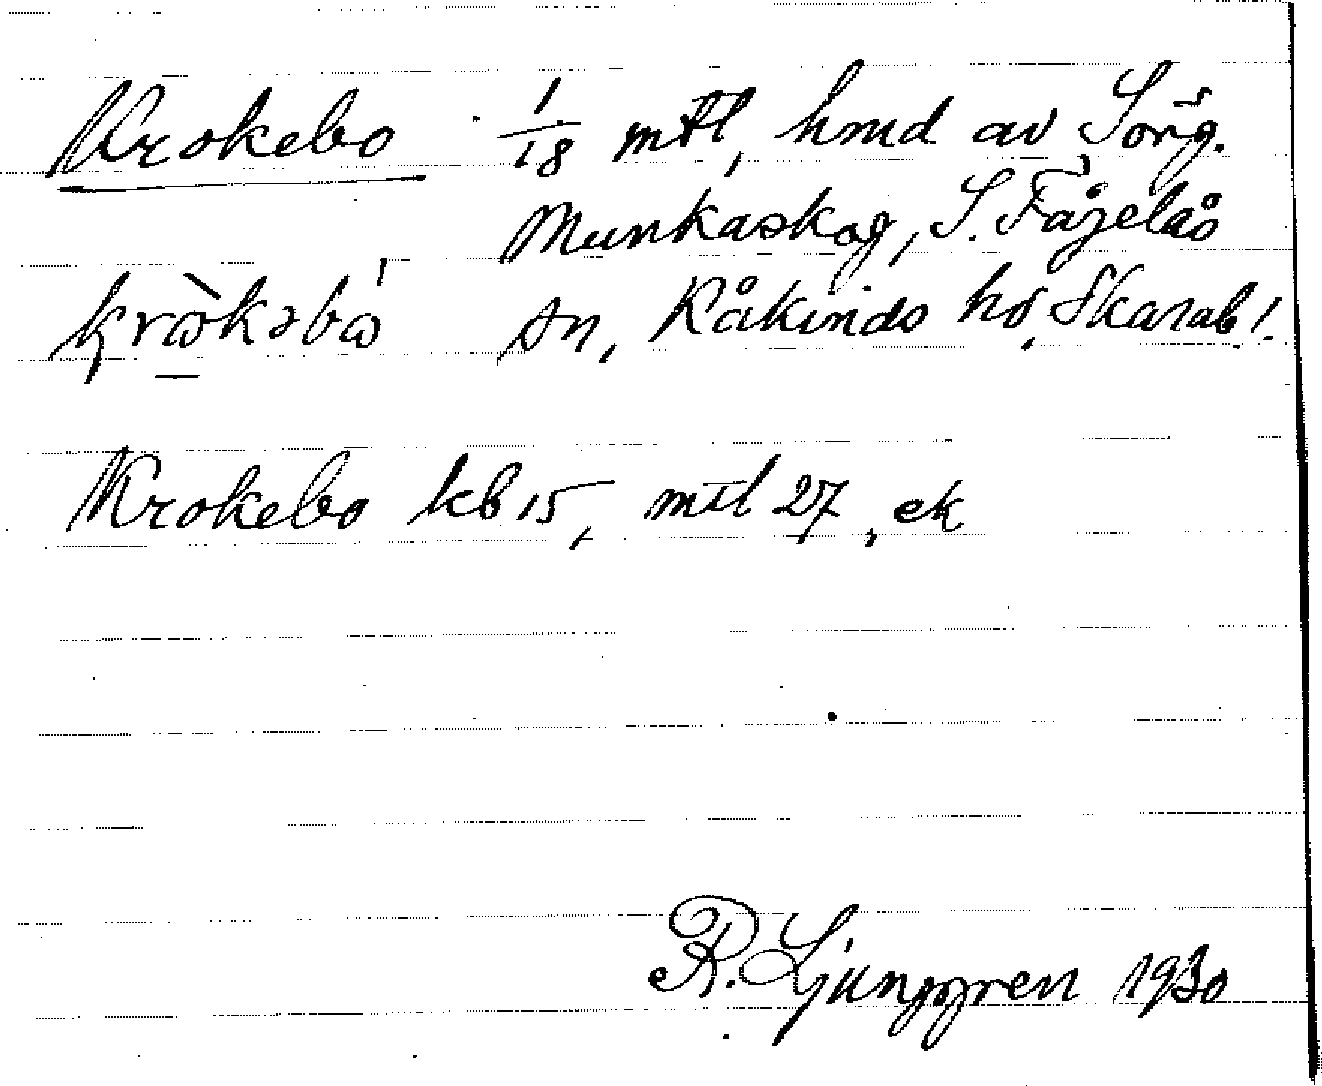 Krokebo 1/18 mtl, hmd av Sörg.
Munkaskog, S. Fågelås
krωkəbω sn, Kåkinds hd, Skarab l.
Krokebo kb 15, mtl 27, ek
R. Ljunggren 1930